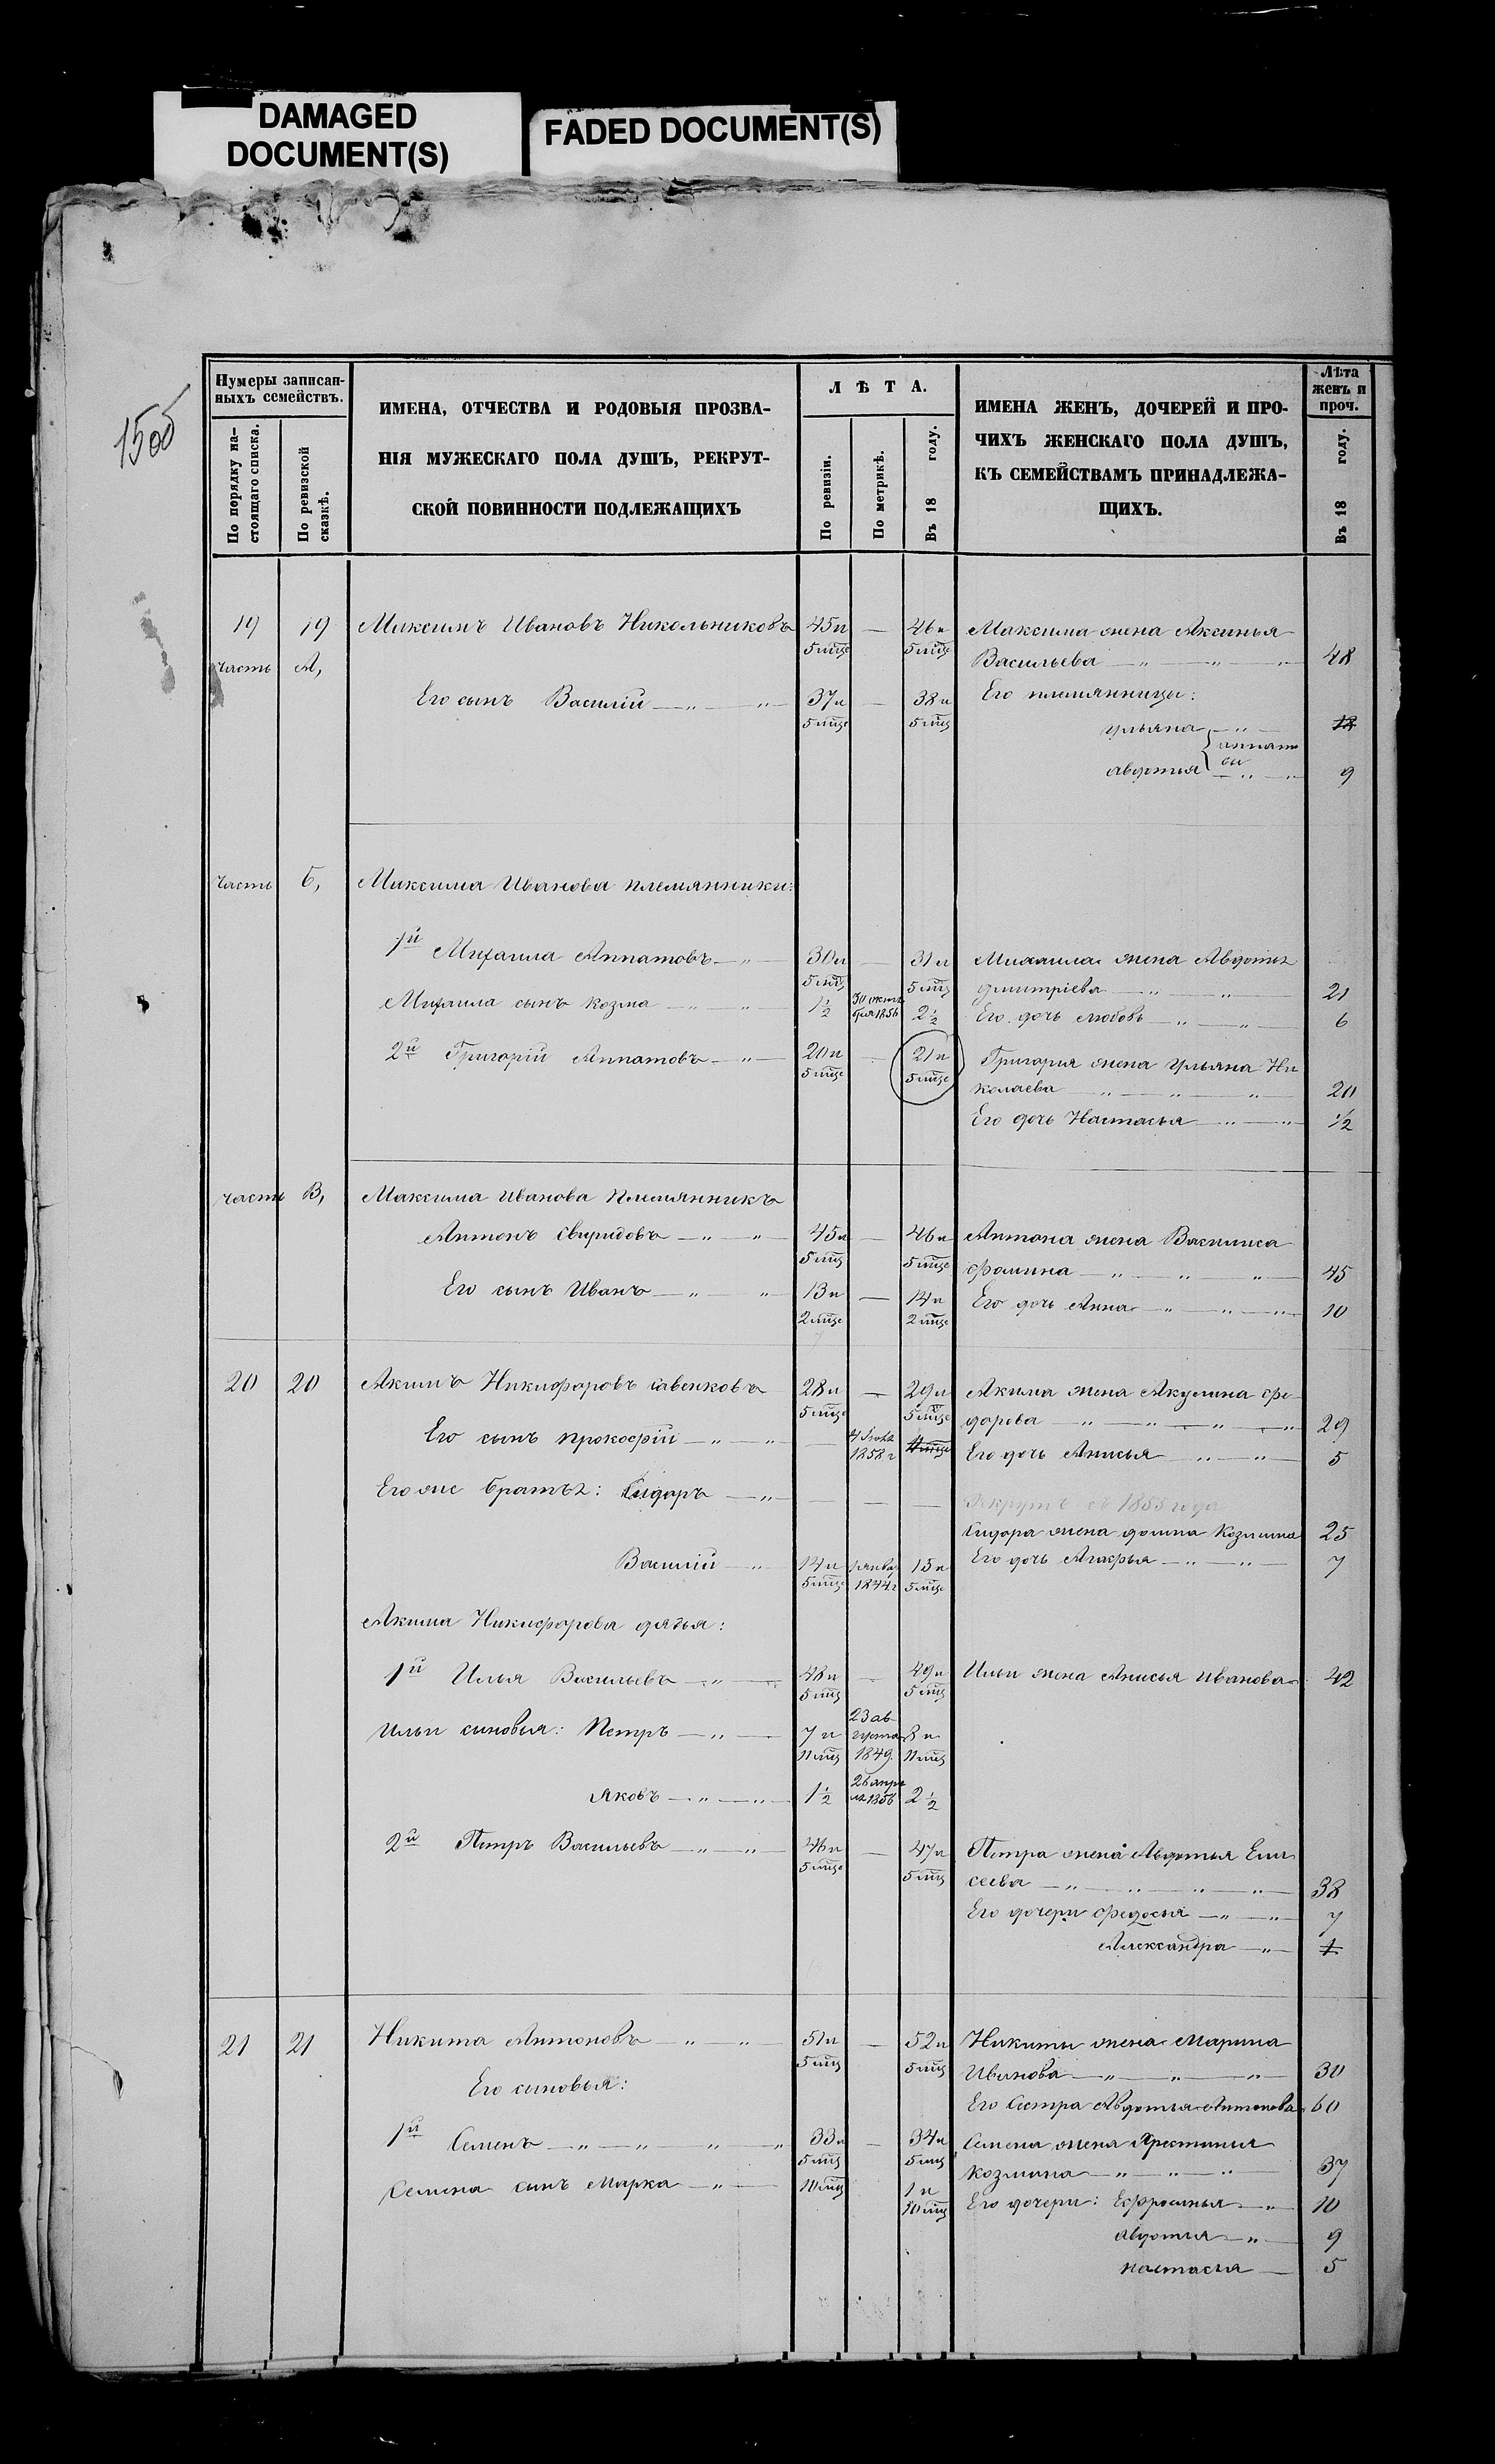 DAMAGED
DOCUMENT(S)
FADED DOCUMENT(S)
1500
Нумеры записан-
ныхъ семействъ.
По порядку на-
стоящаго списка.
По ревизской
сказкѣ.
ИМЕНА, ОТЧЕСТВА И РОДОВЫЯ ПРОЗВА-
НІЯ МУЖЕСКАГО ПОЛА ДУШЪ, РЕКРУТ-
СКОЙ ПОВИННОСТИ ПОДЛЕЖАЩИХЪ
ЛѢТА.
По ревизіи.
По метрикѣ.
Въ 18 году.
ИМЕНА ЖЕНЪ, ДОЧЕРЕЙ И ПРО-
ЧИХЪ ЖЕНСКАГО ПОЛА ДУШЪ,
КЪ СЕМЕЙСТВАМЪ ПРИНАДЛЕЖА-
ЩИХЪ.
Лѣта
женъ и
проч.
Въ 18 году.
19 19 Максимъ Ивановъ Никольниковъ 45 и — 46 и Максима жена Аксинья
5 мце 5 мце Васильева — „ — „ — „ 48
часть А,
Его сынъ Василій — „ — „ 37 и — 38 и Его племянницы:
5 мце 5 мце Ульяна — „ — 12
Авдотья — „ — „ 9
часть Б, Максима Иванова племянники:
1й Михаила Аппатовъ — „ — 30 и — 31 и Михаила жена Авдотья
5 мц 5 мц Дмитріева — „ — „ 21
Михаила сынъ Козма — „ — „ 1½ 30 октя бря 1856 2½ Его дочь Любовь — „ — „ 6
2й Григорій Аппатовъ — „ — 20 и — 21 и Григорія жена Ульяна Ни
5 мце 5 мце колаева — „ — „ — „ 20
Его дочь Настасья — „ — „ ½
часть В, Максима Иванова племянникъ
Антонъ Свиридовъ — „ — „ 45 и — 46 и Антона жена Василиса
5 мц 5 мце Фомина — „ — „ — „ 45
Его сынъ Иванъ — „ — „ 13 и — 14 и Его дочь Анна — „ — „ — „ 10
2 мце 2 мце
20 20 Акимъ Никифоровъ Савенковъ 28 и — 29 и Акима жена Акулина Фе-
5 мце 5 мце дорова — „ — „ — „ — „ 29
Его сынъ Прокофій — „ — „ — 1858 г Его дочь Анисья — „ — „ 5
Его же братья: Сидоръ — „ — — — — Рекрутъ съ 1855 года
Сидора жена Домна Козмина 25
Василій — „ 14 и январ 1844 г 15 и Его дочь Агафья — „ — „ — 7
5 мце 5 мце
Акима Никифорова дядья:
1й Илья Васильевъ — „ — 48 и — 49 и Ильи жена Анисья Иванова 42
5 мц 5 мц
Ильи сыновья: Петръ — „ — 7 и 23 ав- густа 1849. 8 и
11 мц 11 мц
Яковъ — „ — „ — 1½ 26 апре ля 1856 2½
2й Петръ Васильевъ — „ — „ 46 и — 47 и Петра жена Авдотья Ели
5 мце 5 мц сеева — „ — „ — „ — „ 38
Его дочери Федосья — „ — „ 7
Александра — „ 1
21 21 Никита Антоновъ — „ — „ 51 и — 52 и Никиты жена Марина
5 мц 5 мц Иванова — „ — „ — „ 30
Его сыновья: Его Сестра Авдотья Антонова 60
1й Семенъ — „ — „ — „ — „ 33 и — 34 и Семена жена Христинья
5 мц 5 мц Козмина — „ — „ — „ 37
Семена сынъ Марка — „ — 10 мц 1 и Его дочери: Ефросинья — „ 10
10 мц
Авдотья — „ 9
Настасья — 5